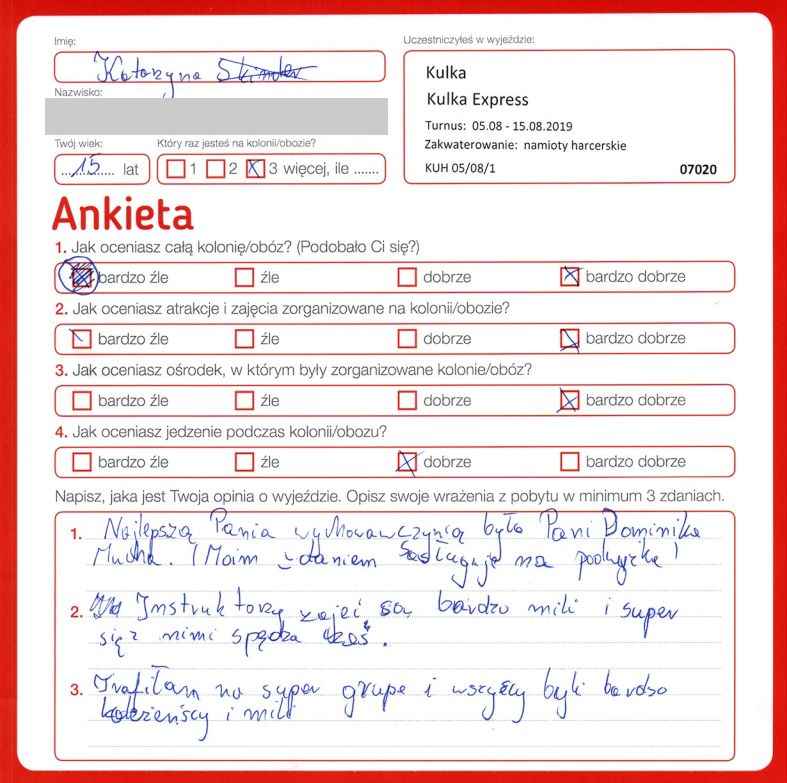 Imię:
Katarzyna
Nazwisko:
Twój wiek:
15 lat
Który raz jesteś na kolonii/obozie?
1 2 3 więcej, ile .......
Uczestniczyłeś w wyjeździe:
Kulka
Kulka Express
Turnus: 05.08 - 15.08.2019
Zakwaterowanie: namioty harcerskie
KUH 05/08/1 07020
Ankieta
1. Jak oceniasz całą kolonię/obóz? (Podobało Ci się?)
bardzo źle źle dobrze bardzo dobrze
2. Jak oceniasz atrakcje i zajęcia zorganizowane na kolonii/obozie?
bardzo źle źle dobrze bardzo dobrze
3. Jak oceniasz ośrodek, w którym były zorganizowane kolonie/obóz?
bardzo źle źle dobrze bardzo dobrze
4. Jak oceniasz jedzenie podczas kolonii/obozu?
bardzo źle źle dobrze bardzo dobrze
Napisz, jaka jest Twoja opinia o wyjeździe. Opisz swoje wrażenia z pobytu w minimum 3 zdaniach.
1. Najlepszą Panią wychowawczynią była Pani Dominika
Mucha. (Moim zdaniem zasługuje na podwyżkę)
2. Instruktorzy zajęć są bardzo mili i super
się z nimi spędza czas.
3. Trafiłam na super grupe i wszyscy byli bardzo
koleżeńscy i mili